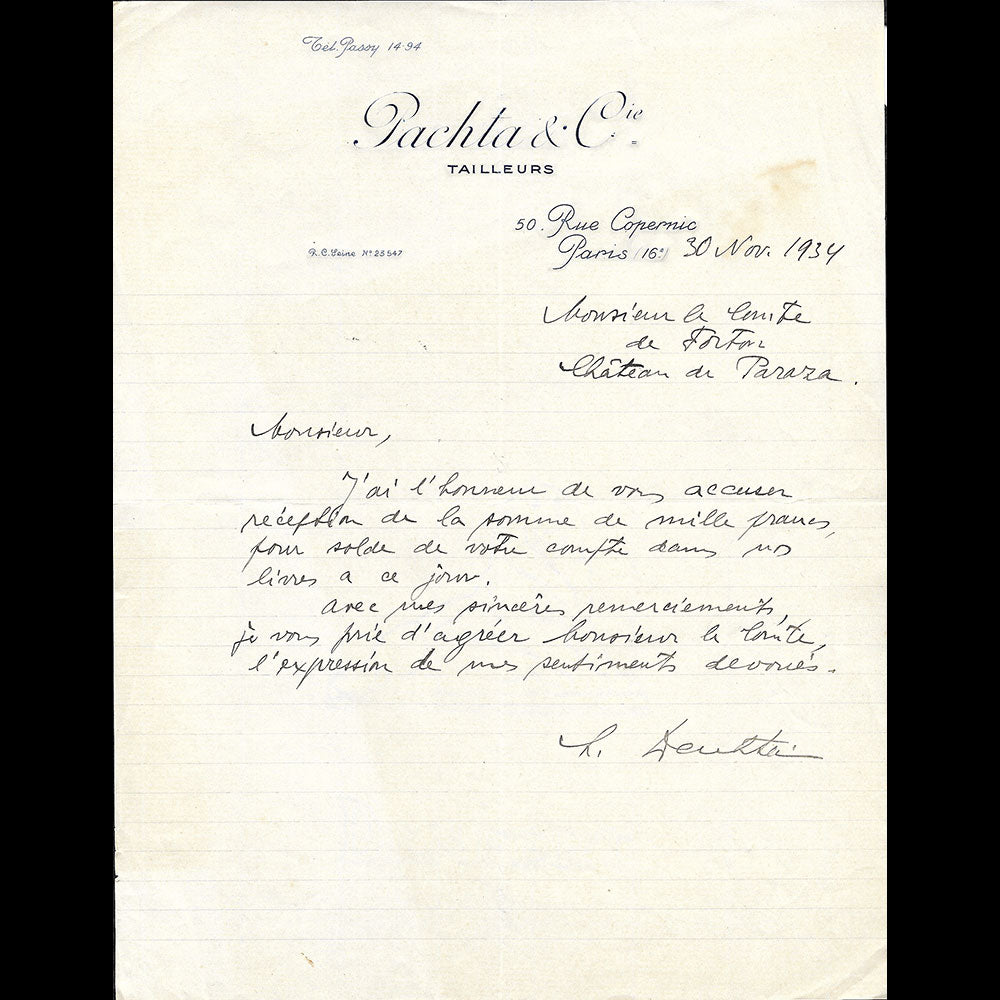 Tél. Passy 14-94
Pachta & Cie
TAILLEURS
50. Rue Copernic
R.C. Seine No 23547
Paris (16e) 30 Nov. 1934
Monsieur le Comte
de Forton
Château de Paraza.
Monsieur,
J'ai l'honneur de vous accuser
réception de la somme de mille francs,
pour solde de votre compte dans nos
livres a ce jour.
avec mes sincères remerciements,
je vous prie d'agréer Monsieur le Comte,
l'expression de mes sentiments devoués.